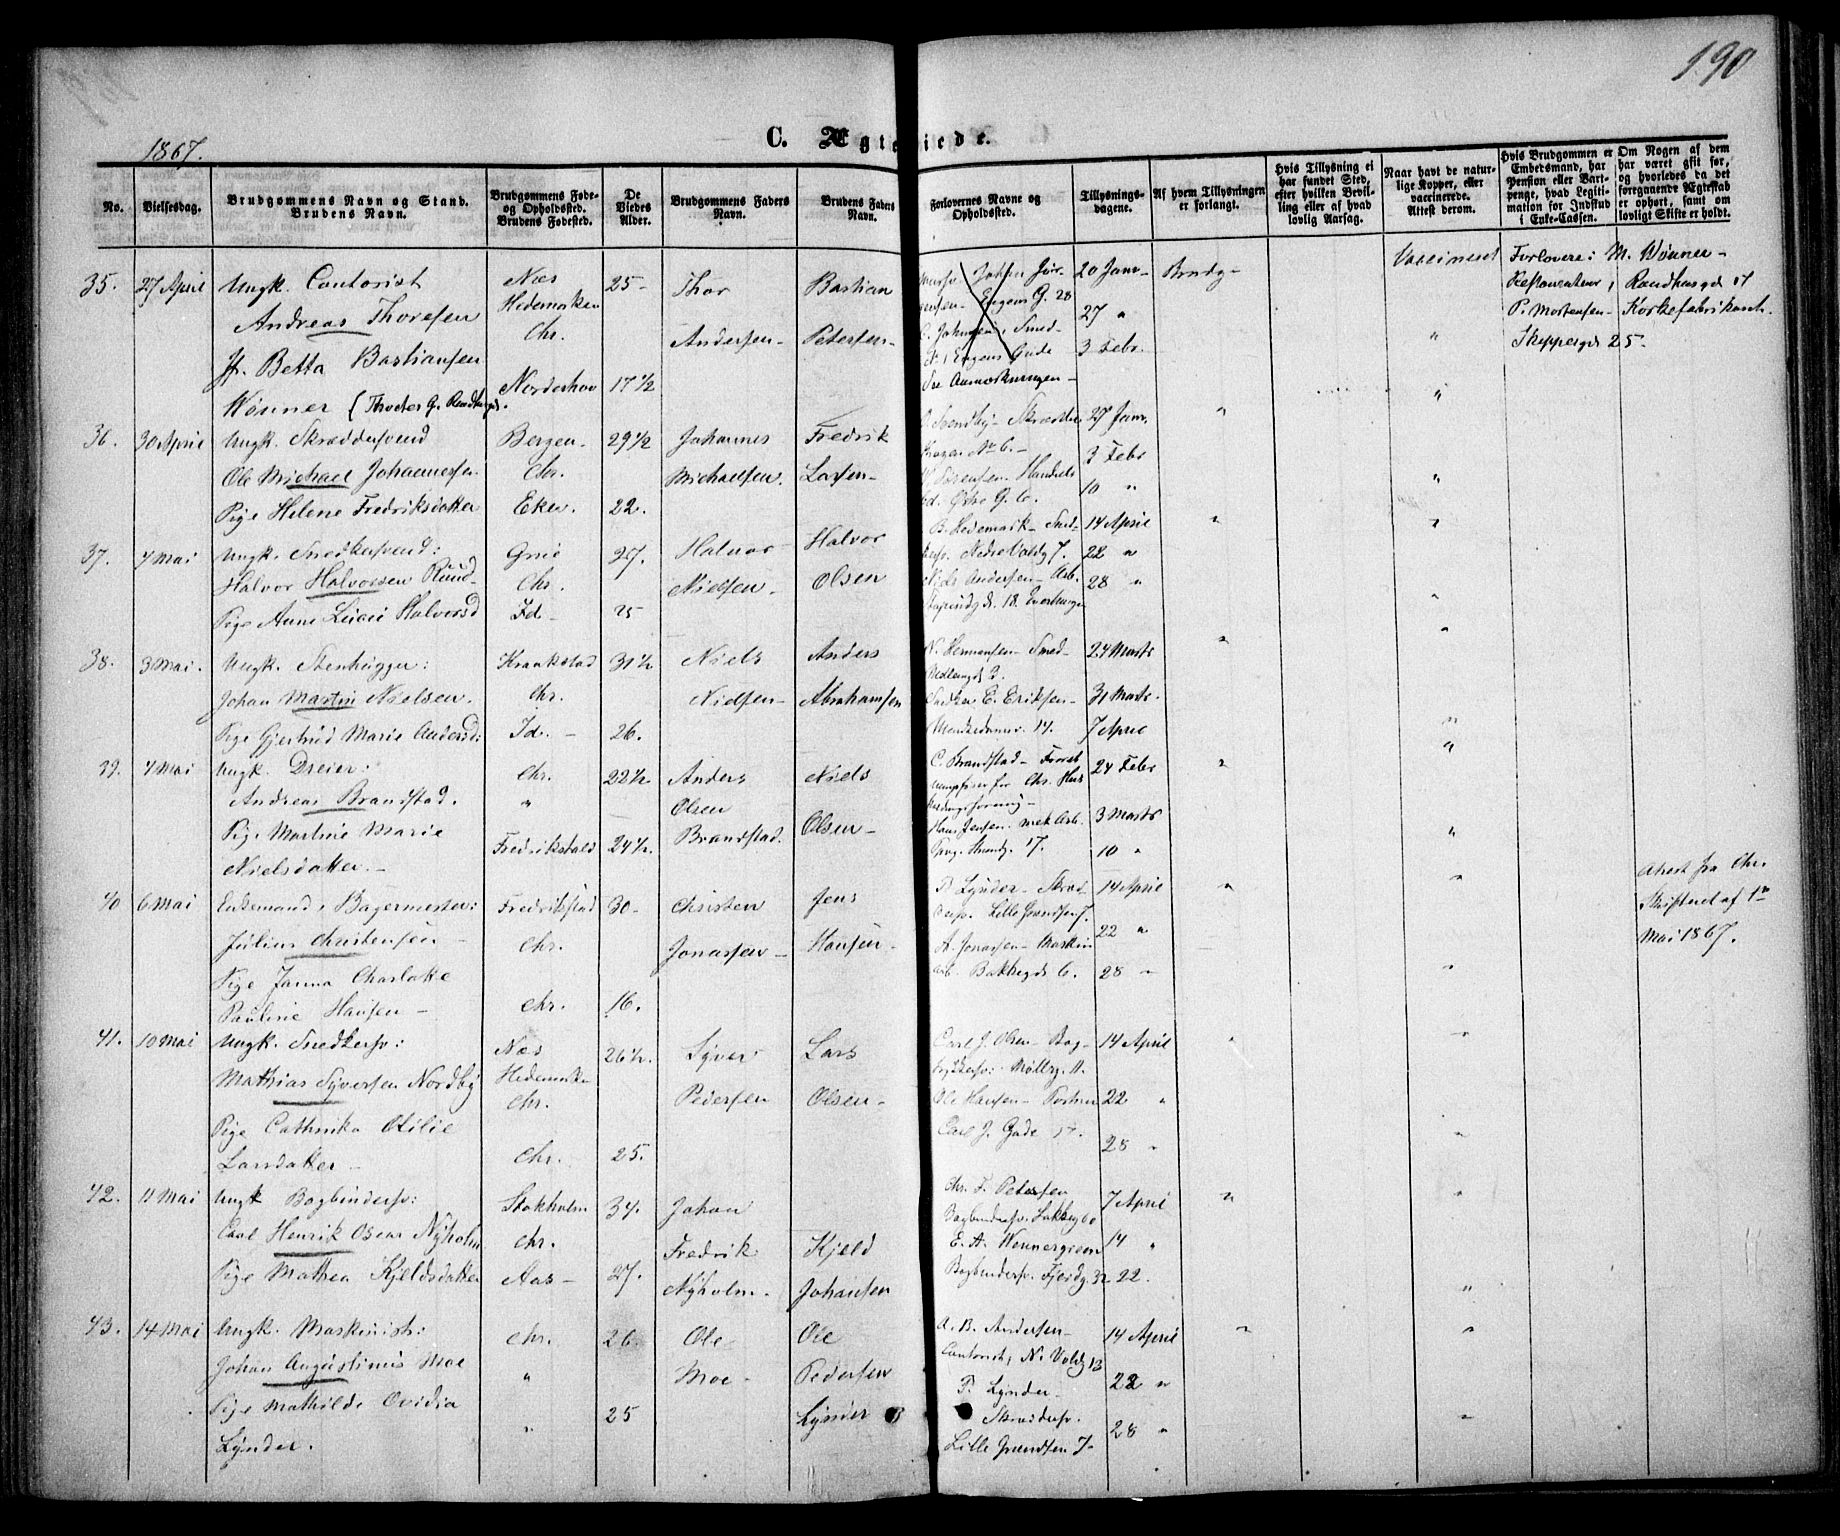 190
1867.
C. Ægteviede.
No.
Vielsesdag.
Brudgommens Navn og Stand.
Brudens Navn.
Brudgommens Føde-
og Opholdsted.
Brudens Fødested.
De
Viedes
Alder.
Brudgommens Faders
Navn.
Brudens Faders
Navn.
Forlovernes Navne og
Opholdsted.
Tillysnings-
dagene.
Af hvem Tillysningen
er forlangt.
Hvis Tillysning ei
har fundet Sted,
efter hvilken Bevil-
ling eller af hvad
lovlig Aarsag.
Naar havt de natur-
lige Kopper, eller
vaccinerede.
Attest derom.
Hvis Brudgommen er
Embedsmand, har
Pension eller Vart-
penge, hvad Legiti-
mation for Indskud
i Enke-Cassen.
Om Nogen af dem
har været gift før,
og hvorledes da det
foregaaende Ægteskab
er ophørt, samt om
lovligt Skifte er holdt.
35. 27 April Ungk. Contorist Næs 25- Thor Bastian
Johsen Jør- 20 Janr. Brudg- Vaccineret Forlovere: M. Wønner-
Andreas Thoresen Hedemarken Chr. Andersen- Petersen-
gensen- Engens G. 28 27 " Restaurateur, Randhusgd 17
C. Johnsen, Smed- P. Mortensen- Korkefabrikant
Jfr. Betta Bastiansen Engens Gade 3 Febr. " Skippergd 25-
Wønner (Theater G. Norderhov 17 1/2 See Anmærkningen-
36. 30 April Ungk. Skræddersvend Bergen- 29 1/2 Johannes Fredrik
O. Svendby- 27 Janr. "
Ole Michael Johannessen Chr. Michaelsen. Larsen-
No 6.- 3 Febr
Sørensen- Handels 10 "
Pige Helene Fredriksdatter Eker. 22.
37. 4 Mai Ungk. Snedkersvend: Grue 27. Halvor Halvor
B. Hedemark- Sned- 14 April "
Halvor Halvorsen Ruud- Chr. Nielsen- Olsen
22 "
Niels Andersen- Arb. 28 "
Pige Anne Halversd Id- 25
38. 3 Mai. Ungk. Stenhugger: Kraakstad 31 1/2 Niels Anders
N. Hermansen- Smed- 24 Marts "
Johan Martin Nielsen. Chr. Nielsen- Abrahamsen
E. Eriksen- 31 Marts.
Pige Gjertrud Marie Andersd: Id.- 26. 14. 7 April
39. 4 Mai Ungk. Dreier: Chr. 22 1/2 Anders Niels
C. Brandstad- 24 Febr "
for Chr.
Andreas Brandstad. " Olsen Olsen-
Hans Jensen. 3 Marts
Pige Martine Marie Fredrikshald 24 1/2. Brandstad. 17. 10 "
Nielsdatter.-
40 6 Mai Enkemand, Bagermester: Fredrikstad 30- Christen Jens
P. Lynder- Skræd- 14 April " Attest fra Chr.
dersv. Lille Grændsen 7. 22 " Skifteret af 1ste
Julius Christensen- Chr. Jonassen- Hansen-
A. Jonassen- Maskin Mai 1867.
arb. Bakkegd 6. 28 "
Pige Janna Charlotte
Pauline Hansen- Chr. 16.
41. 10 Mai Ungk. Snedkersv: Næs 26 1/2. Syver Lars
Carl J. Olsen- Bog- 14 April "
trykkersv: Møllerg. 11.
Mathias Syversen Nordby Hedemarken Chr. Pedersen Olsen-
Ole Hansen- 22 "
Pige Cathrinka Otilie Carl J. Gade 28 "
Larsdatter- Chr. 25.
42. 11 Mai Ungk Bogbindersv: Stokholm 34. Johan
Chr. F. Petersen 7 April "
Bogbindersv.
Carl Henrik Oscar Nyholm Chr. Fredrik Kjeld
E. A. Wennergreen 14 "
Pige Mathea Kjeldsdatter Aas- 27. Nyholm- Johansen
Bogbindersv. Fjordg. 32 22.
43. 14 Mai Ungk. Maskinist: Chr. 26 Ole Ole
A. B. Andersen- 14 April "
Contorist, N. Voldg 13
Johan Augustinus Moe " Moe- Pedersen
P. Lynder- 22 "
Pige Mathilde Ovidia " 25 Lynder
Skræddersv. 28 "
Lynder. Lille Grændsen 7-